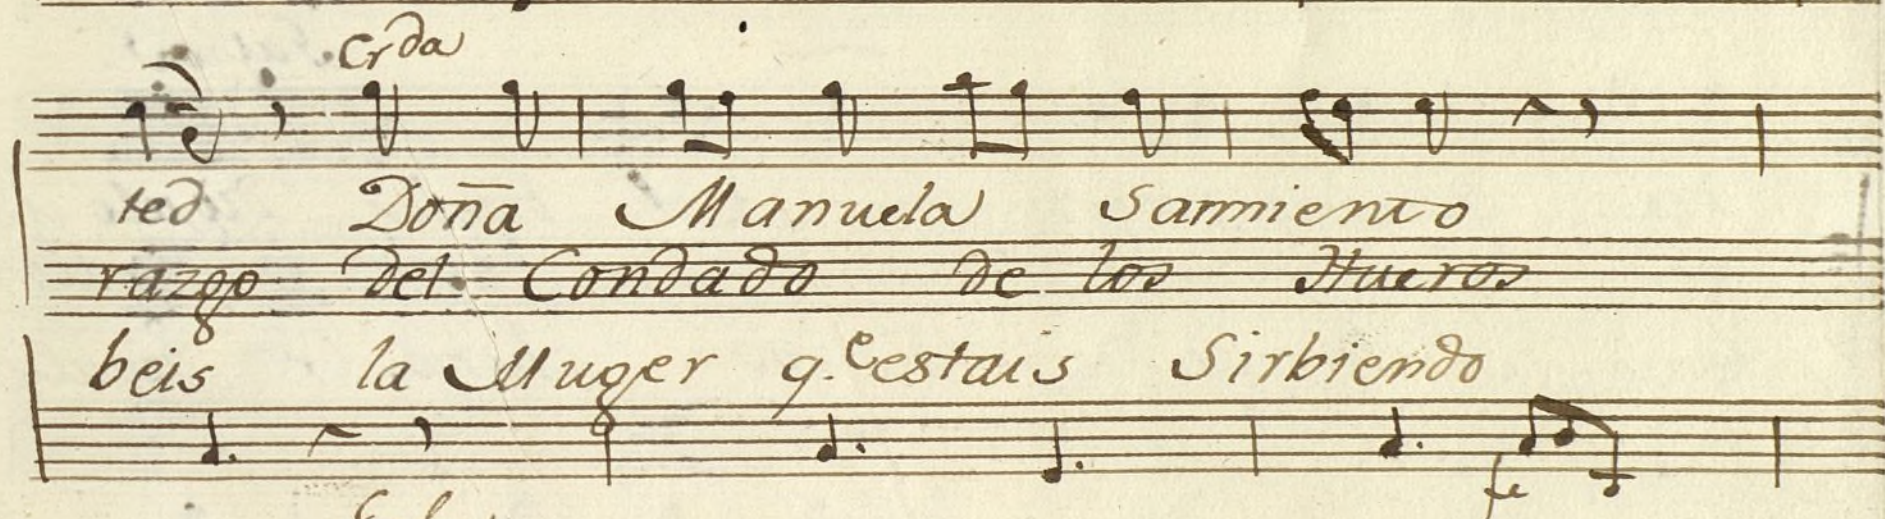 Crda
ted Doña Manuela Sarmiento
razgo del Condado de los Hueros
beis la Muger q.e estais Sirbiendo
fe